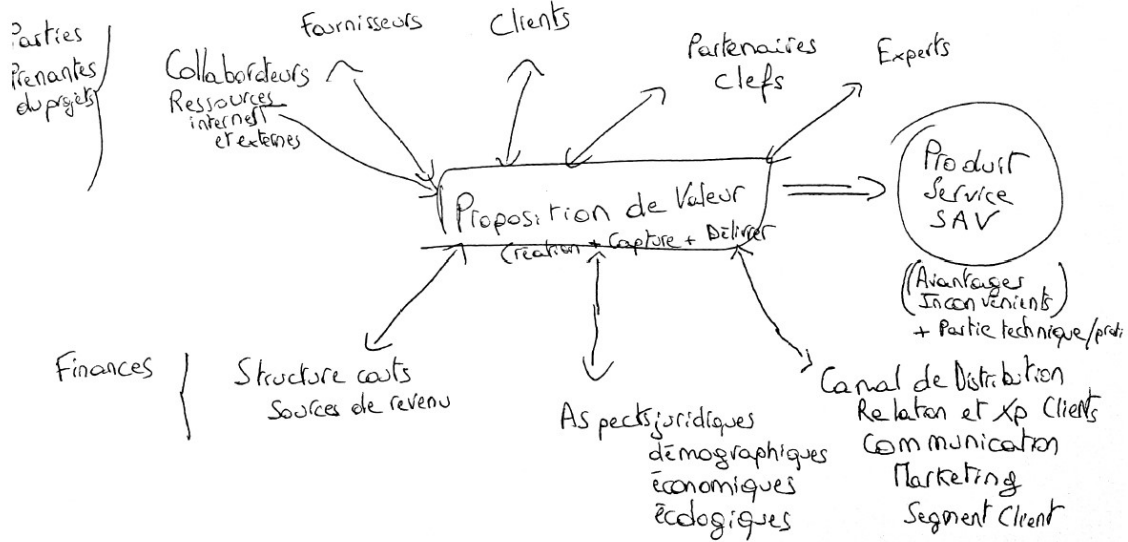 Parties
Prenantes
du projets
Fournisseurs
Clients
Collaborateurs
Ressources
internes
et externes
Partenaires
Clefs
Experts
Proposition de Valeur
Création + Capture + Délivrer
Produit
Service
SAV
(Avantages
Inconvénients)
+ Partie technique/
Finances
Structure couts
Sources de revenu
Aspects juridiques
démographiques
économiques
écologiques
Canal de Distribution
Relation et Xp Clients
Communication
Marketing
Segment Client